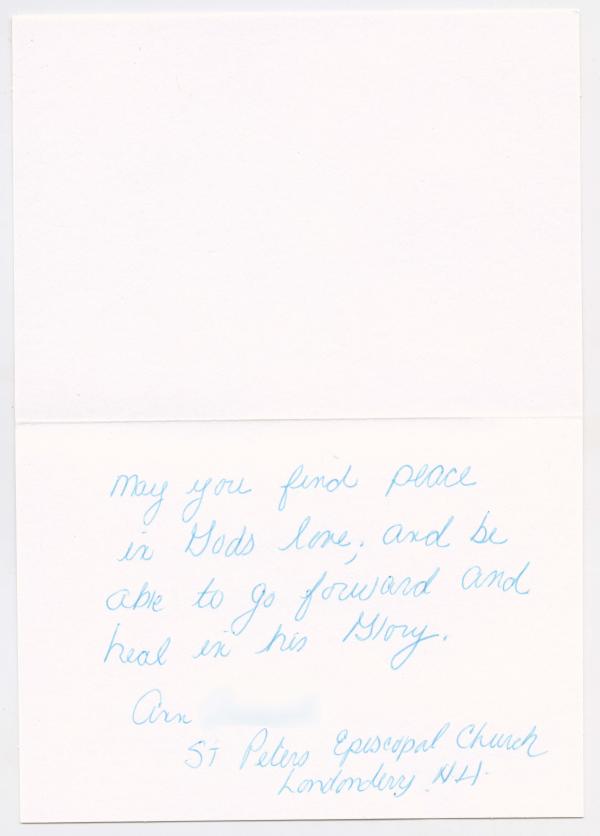 May you find peace
in Gods love, and be
able to go forward and
heal in his Glory.
Ann
St Peters Episcopal Church
Londondery NH